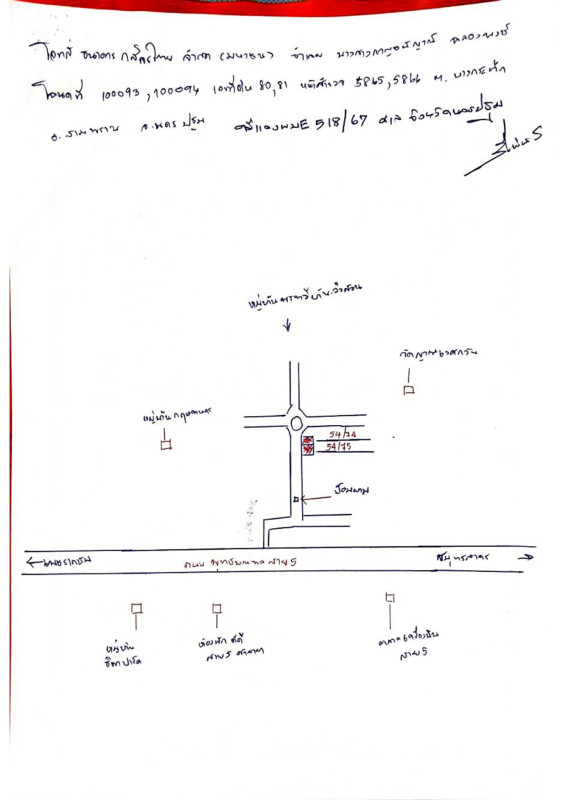 โจทก์ ธนาคาร กสิกรไทย จำกัด (มหาชน) จำเลย นางสาวกาญจน์
โฉนดที่ 100093, 100094 เลขที่ดิน 80, 81 หน้าสำรวจ 5865, 5866 ต. บางกระทึก
อ. สามพราน จ. นครปฐม คดีแดง ผบE 518/67 ศาล จังหวัดนครปฐม
หมู่บ้าน
หมู่บ้าน กฤษดานคร
54/74
54/75
ป้อมยาม
ถนน พุทธมณฑล สาย 5
สมุทรสาคร
หมู่บ้าน
ห้องพัก
สาย 5 ศาลายา
ตลาดเครื่องบิน
สาย 5